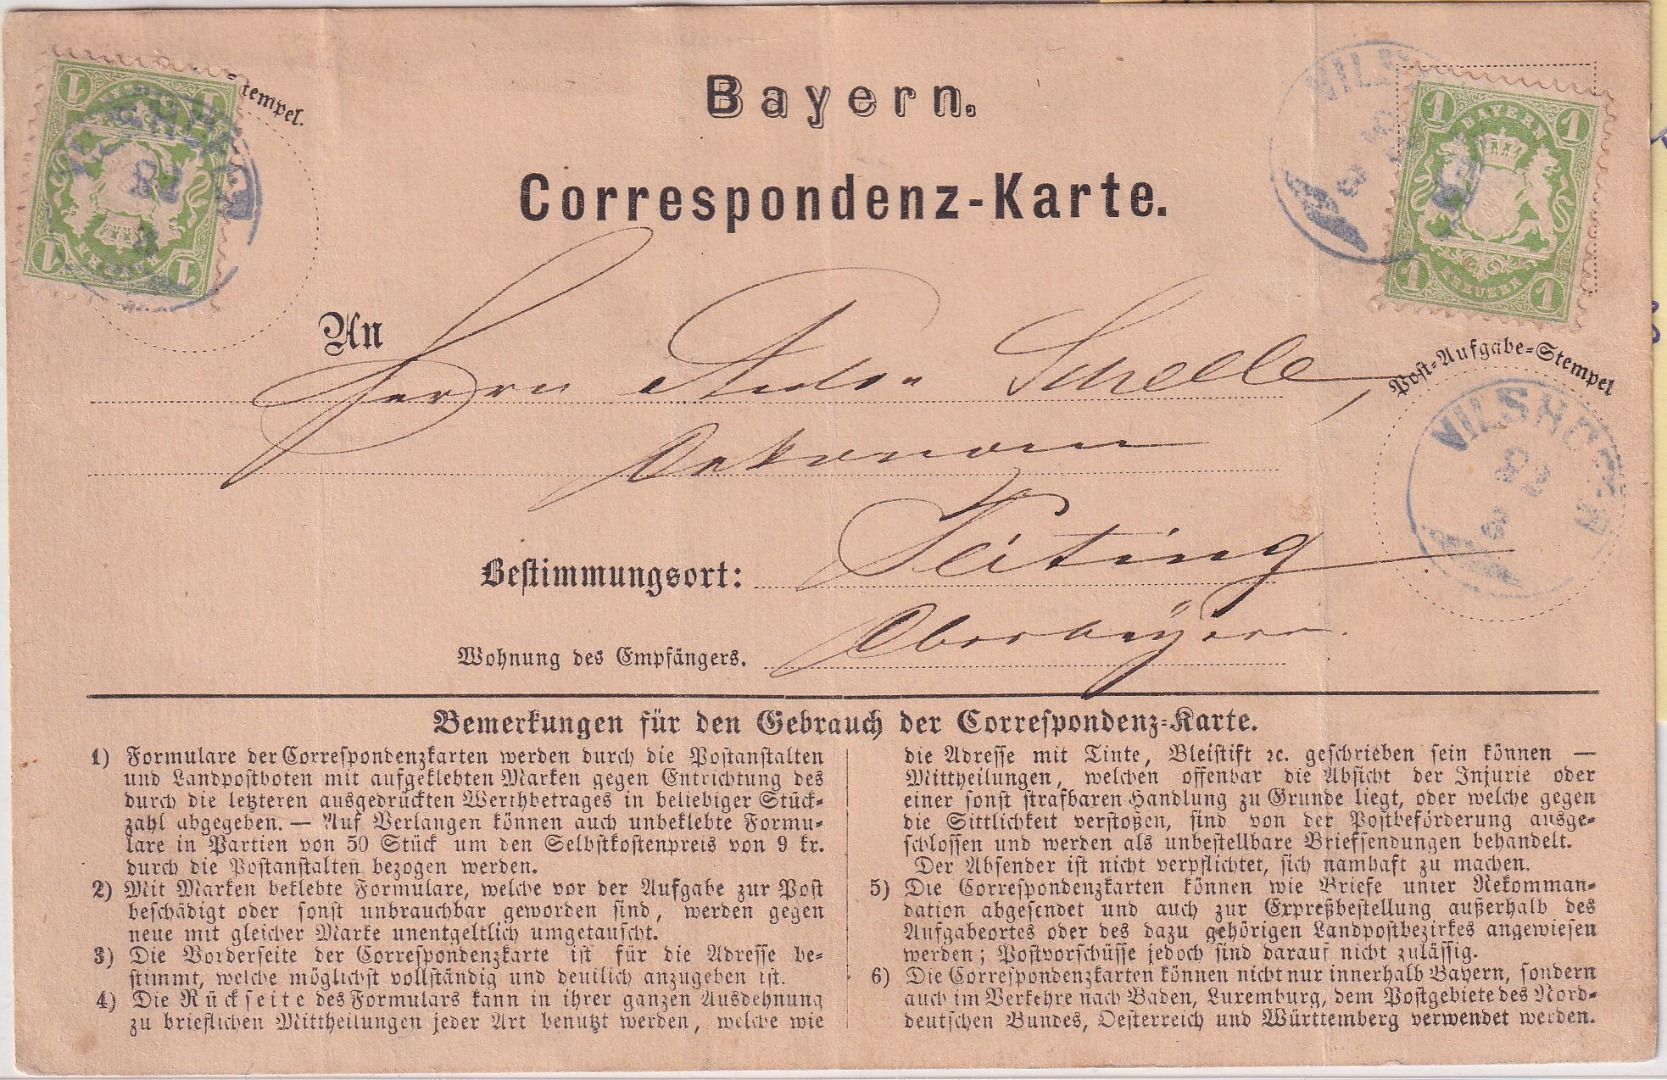 tempel.
Bayern.
Correspondenz-Karte.
1 1
BAYERN
KREUZER
1 1
An
Herrn Anton Scheele,
Oekonom
Post-Aufgabe-Stempel
VILSHOFEN
Bestimmungsort: Peiting
Wohnung des Empfängers. Oberbayern.
Bemerkungen für den Gebrauch der Correspondenz-Karte.
1) Formulare der Correspondenzkarten werden durch die Postanstalten
und Landpostboten mit aufgeklebten Marken gegen Entrichtung des
durch die letzteren ausgedrückten Werthbetrages in beliebiger Stück-
zahl abgegeben. — Auf Verlangen können auch unbeklebte Formu-
lare in Partien von 50 Stück um den Selbstkostenpreis von 9 kr.
durch die Postanstalten bezogen werden.
2) Mit Marken beklebte Formulare, welche vor der Aufgabe zur Post
beschädigt oder sonst unbrauchbar geworden sind, werden gegen
neue mit gleicher Marke unentgeltlich umgetauscht.
3) Die Vorderseite der Correspondenzkarte ist für die Adresse be-
stimmt, welche möglichst vollständig und deutlich anzugeben ist.
4) Die Rückseite des Formulars kann in ihrer ganzen Ausdehnung
zu brieflichen Mittheilungen jeder Art benutzt werden, welche wie
die Adresse mit Tinte, Bleistift ꝛc. geschrieben sein können —
Mittheilungen, welchen offenbar die Absicht der Injurie oder
einer sonst strafbaren Handlung zu Grunde liegt, oder welche gegen
die Sittlichkeit verstoßen, sind von der Postbeförderung ausge-
schlossen und werden als unbestellbare Briefsendungen behandelt.
Der Absender ist nicht verpflichtet, sich namhaft zu machen.
5) Die Correspondenzkarten können wie Briefe unter Rekomman-
dation abgesendet und auch zur Expreßbestellung außerhalb des
Aufgabeortes oder des dazu gehörigen Landpostbezirkes angewiesen
werden; Postvorschüsse jedoch sind darauf nicht zulässig.
6) Die Correspondenzkarten können nicht nur innerhalb Bayern, sondern
auch im Verkehre nach Baden, Luxemburg, dem Postgebiete des Nord-
deutschen Bundes, Oesterreich und Württemberg verwendet werden.